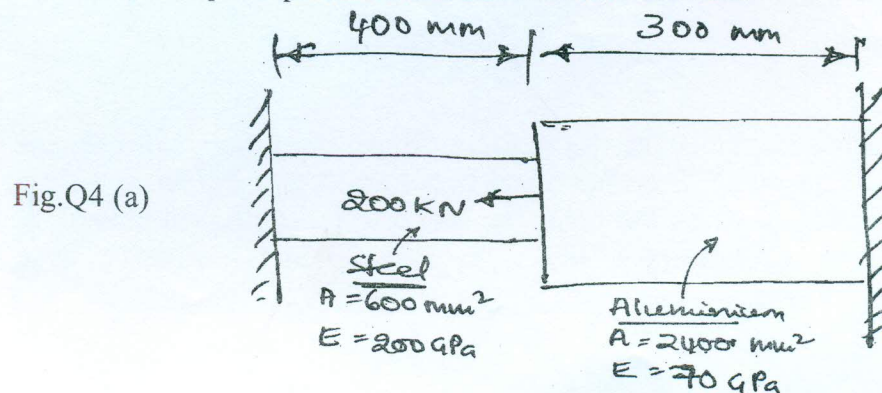 400 mm
300 mm
Fig.Q4 (a)
200KN
Steel
A = 600 mm²
E = 200 GPa
Aluminium
A = 2400 mm²
E = 70 GPa